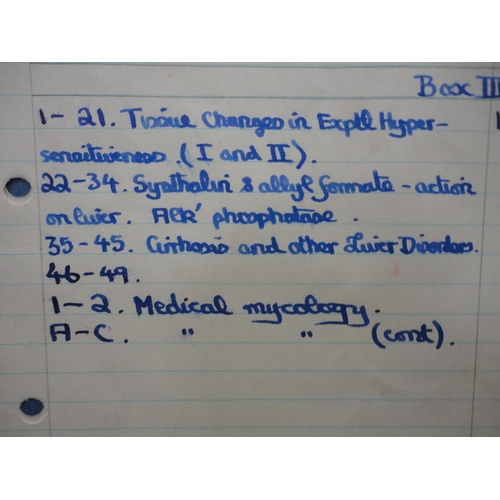 Box III
1-21. Tissue Changes in Exptl Hyper-
sensitiveness. (I and II).
22-34. Synthalin & allyl formate - action
on liver. Alk' phosphatase.
35-45. Cirrhosis and other Liver Disorders.
46-49.
1-2. Medical mycology.
A-C. " " (cont).